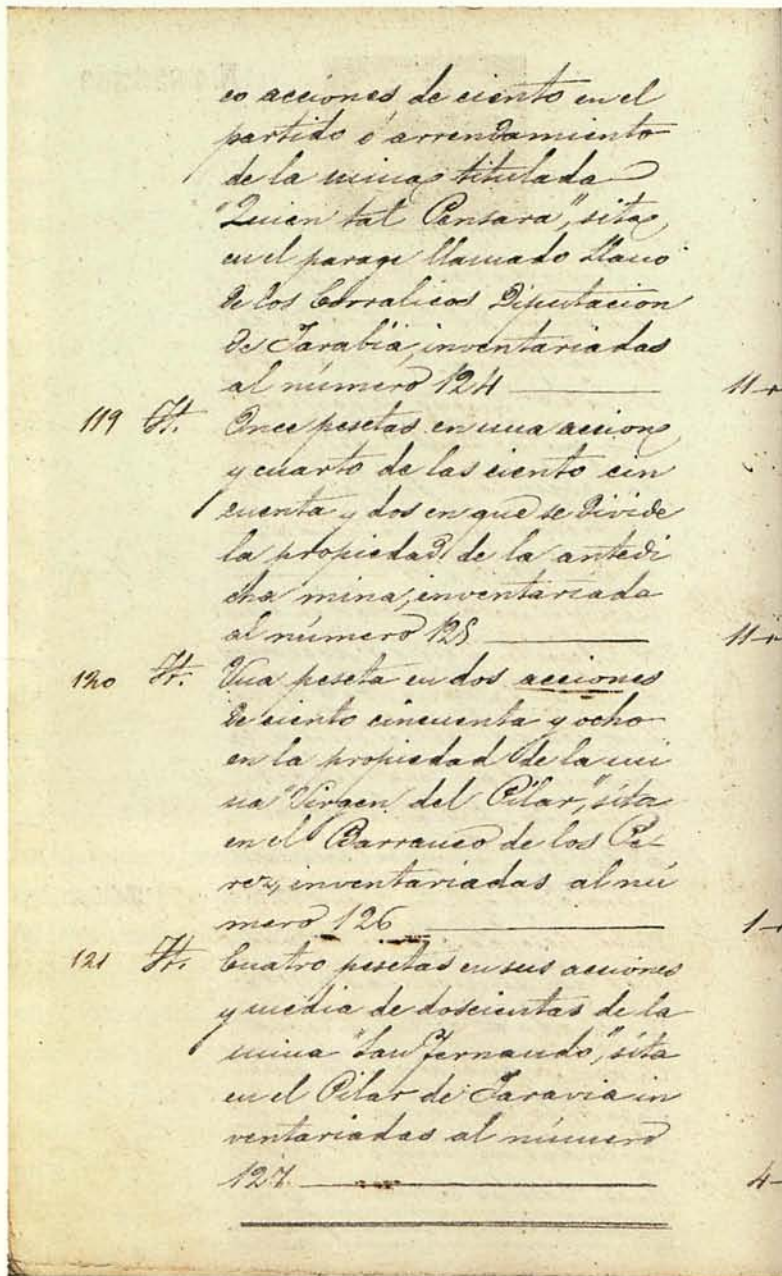 co acciones de ciento en el
partido ó arrendamiento
de la mina titulada
"Quien tal Pensara", sita
en el parage llamado Llano
de los Corralicos Diputacion
de Tarabia, inventariadas
al número 124 11
119 It. Once pesetas en una accion
y cuarto de las ciento cin
cuenta y dos en que se divide
la propiedad de la antedi
cha mina, inventariada
al número 125 11
120 It. Una peseta en dos acciones
de ciento cincuenta y ocho
en la propiedad de la mi
na "Virgen del Pilar", sita
en el Barranco de los Pe-
rez, inventariadas al nú
mero 126 1
121 It. Cuatro pesetas en seis acciones
y media de doscientas de la
mina "San Fernando", sita
en el Pilar de Taravia in
ventariadas al número
127 4